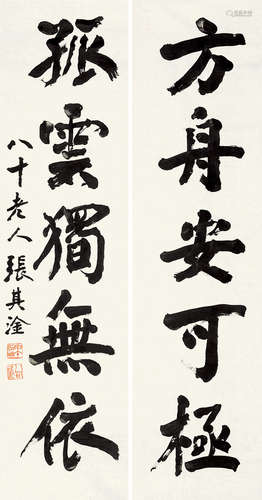 方舟安可極
孤雲獨無依
八十老人張其淦